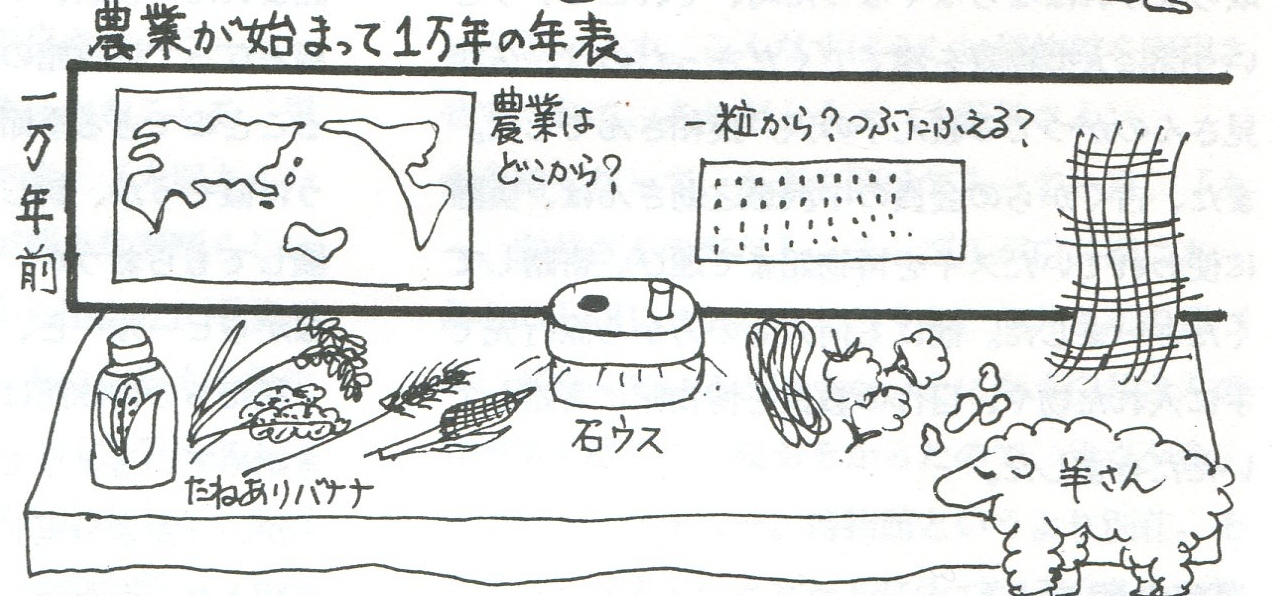 農業が始まって1万年の年表
一万年前
農業は
どこから?
一粒から?つぶにふえる?
石ウス
たねありバナナ
羊さん